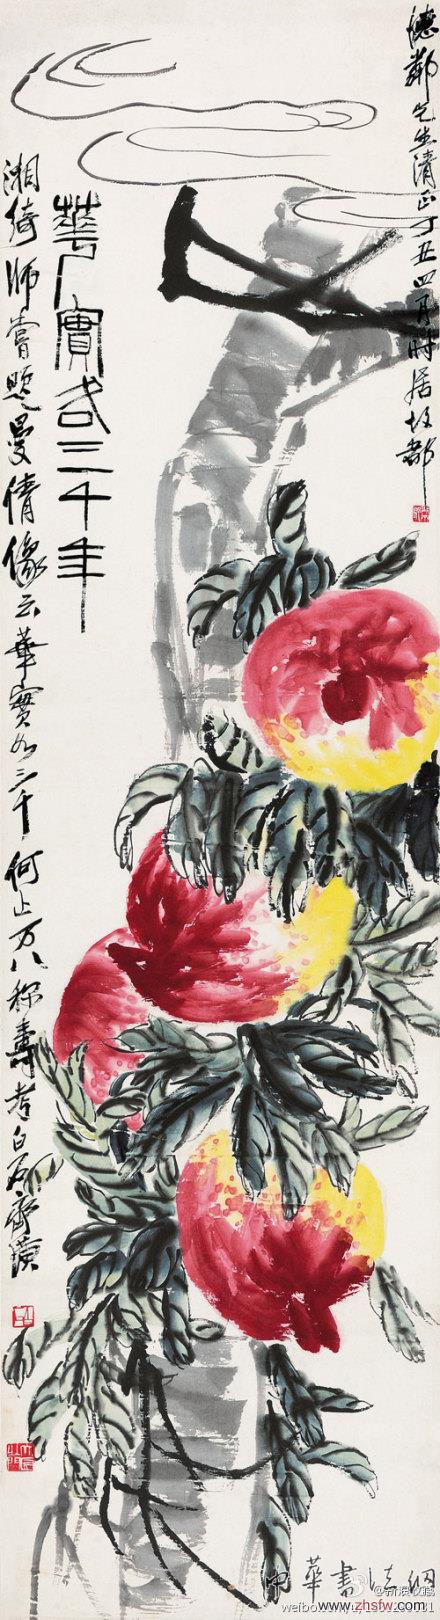 華實各三千年
湘綺師嘗題曼倩像云華實各三千何止万八称壽考白石齊璜
德鄰先生清正丁丑四月時居故都
中華書法網
www.zhsfw.com